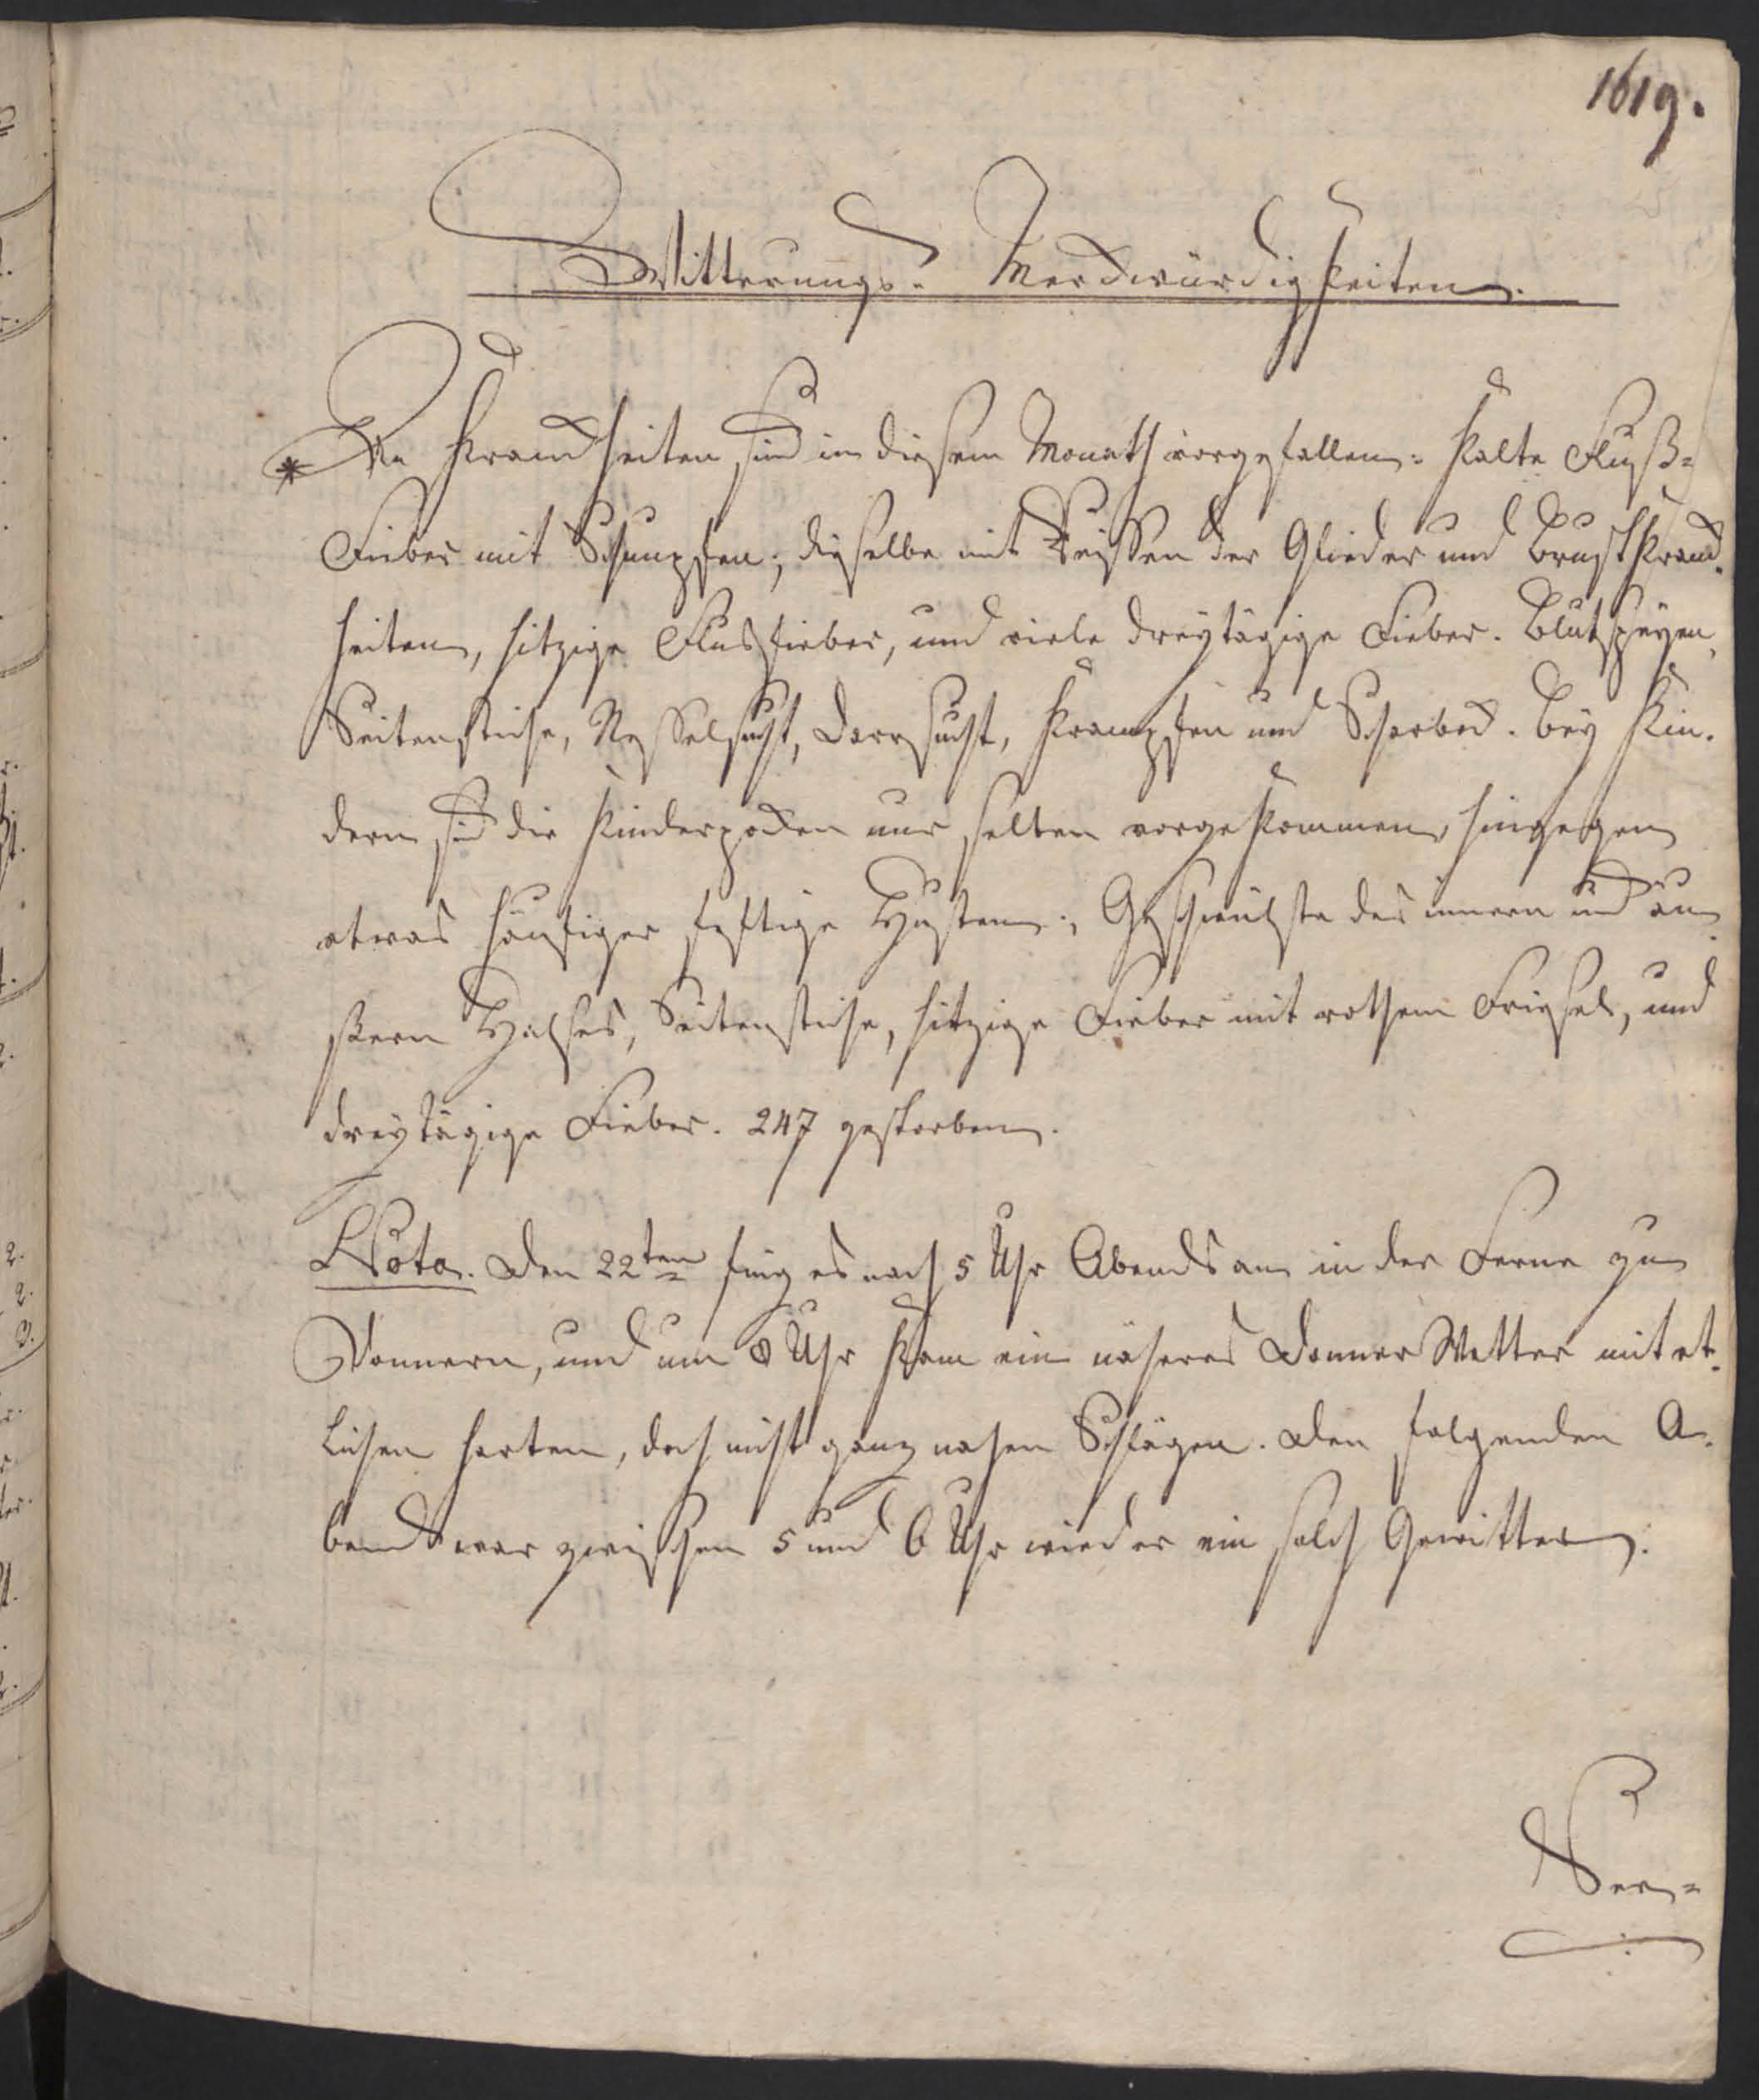 1619.
Witterungs-Merckwürdigkeiten.
* An Kranckheiten sind in diesem Monath vorgefallen: kalte Fluß-
Fieber mit Schnupfen; dieselbe mit Reissen der Glieder und Brustkranck-
heiten, hitzige Flusfieber, und viele dreytägige Fieber. Blutspeyen,
Seitenstiche, Nesselsucht, Darrsucht, Krampfen und Scharbock. Bey Kin-
dern sind die Kinderpocken nur selten vorgekommen, hingegen
etwas häufiger heftige Husten; Geschwülste des innern und äu-
ßern Halses, Seitenstiche, hitzige Fieber mit rothem Friesel, und
dreytägige Fieber. 247 gestorben.
Nota. Den 22ten fing es nach 5 Uhr Abends an in der Ferne zu
Donnern, und um 8 Uhr kam ein näheres Donner Wetter mit et-
lichen harten, doch nicht ganz nahen Schlägen. Den folgenden A-
bend war zwischen 5 und 6 Uhr wieder ein solch Gewitter.
Ver-